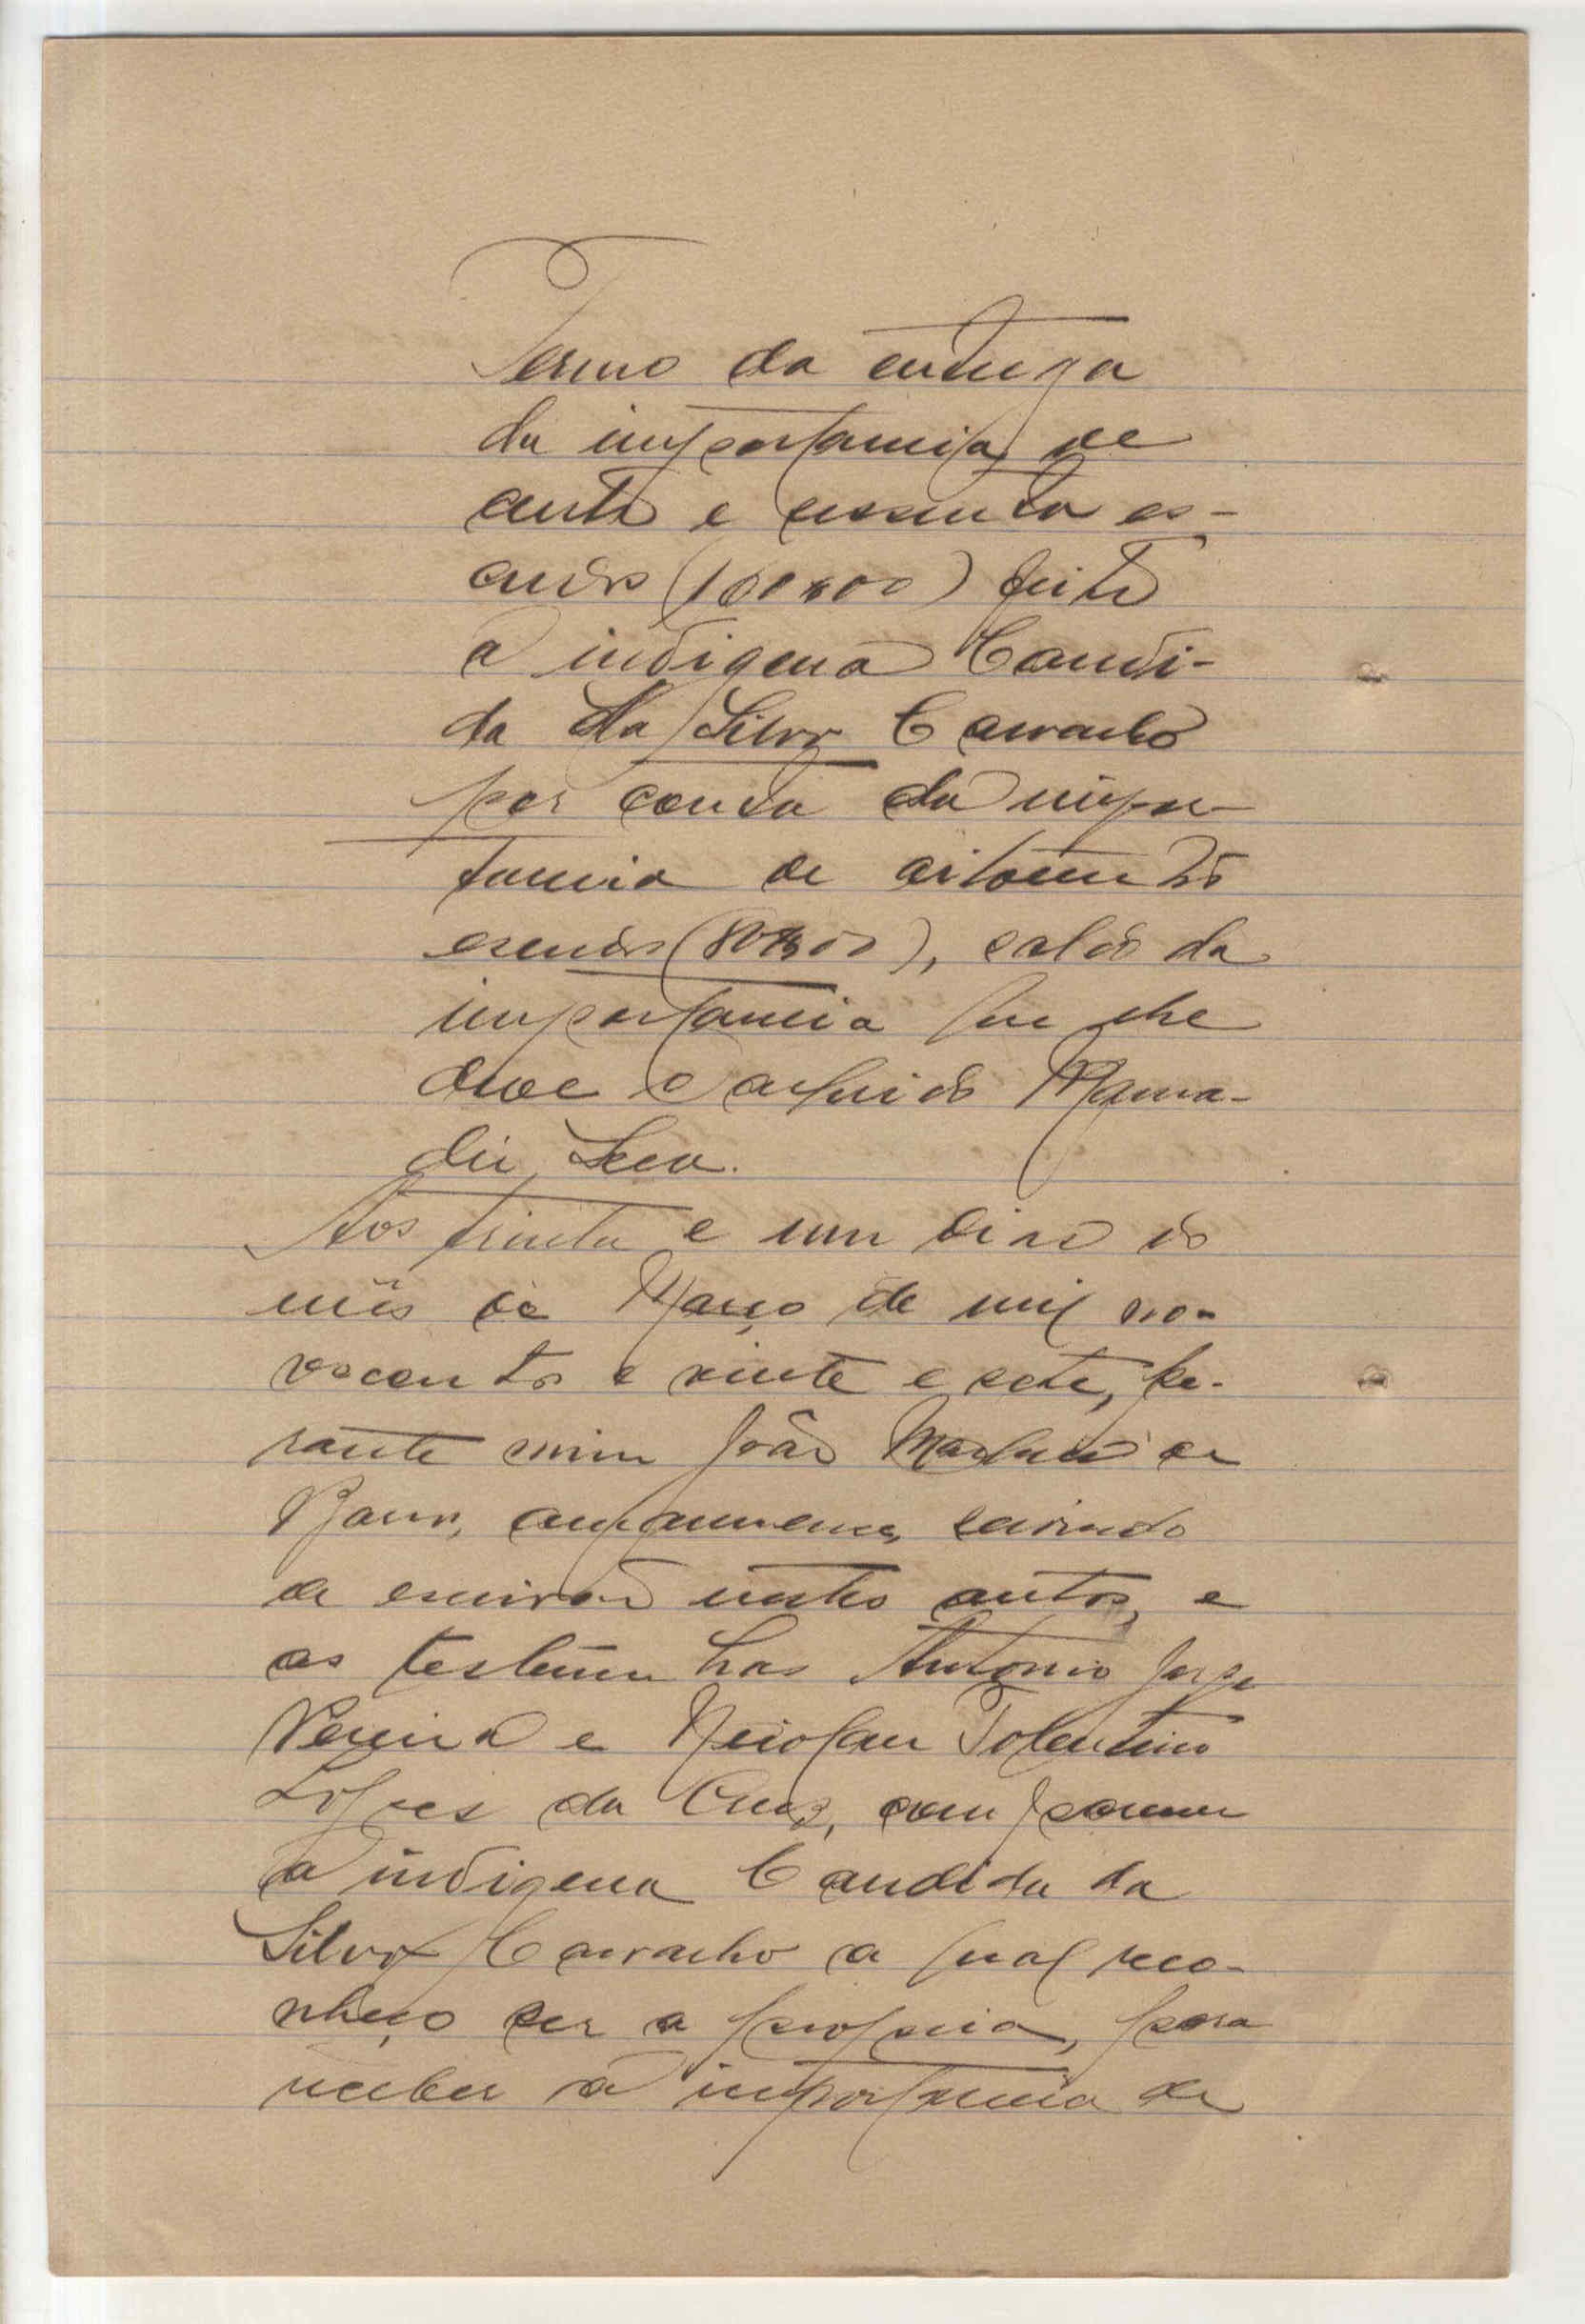 Termo da entrega
da importancia de
cento e sessenta es-
cudos (160$00) feita
á indigena Candi-
da da Silva Carvalho
por conta da impor-
tancia de oitocentos
escudos (800$00), saldo da
importancia que lhe
deve o arguido Mama-
dú Seca.
Aos trinta e um dias do
mês de Março de mil no-
vecentos e vinte e sete, pe-
rante mim João de
servindo
de escrivão nestes autos, e
as testemunhas Antonio Jorge
Pereira e Nicolau Tolentino
Lopes da Cruz, compareceu
a indigena Candida da
Silva Carvalho a qual reco-
nheço ser a propria, para
receber a importancia de